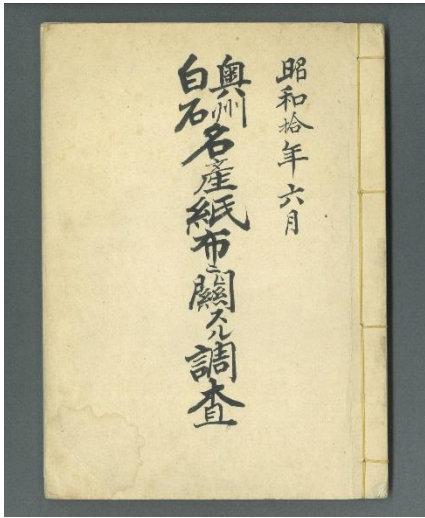 昭和拾年六月
奥州
白石
名産紙布ニ関スル調査